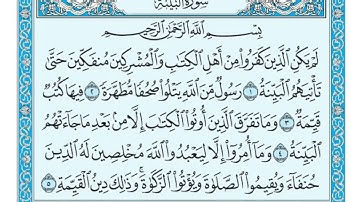 سُورَةُ البَيِّنَةِ
بِسْمِ اللَّهِ الرَّحْمَٰنِ الرَّحِيمِ
لَمْ يَكُنِ الَّذِينَ كَفَرُوا مِنْ أَهْلِ الْكِتَابِ وَالْمُشْرِكِينَ مُنفَكِّينَ حَتَّىٰ
تَأْتِيَهُمُ الْبَيِّنَةُ ١ رَسُولٌ مِّنَ اللَّهِ يَتْلُوا صُحُفًا مُّطَهَّرَةً ٢ فِيهَا كُتُبٌ
قَيِّمَةٌ ٣ وَمَا تَفَرَّقَ الَّذِينَ أُوتُوا الْكِتَابَ إِلَّا مِنۢ بَعْدِ مَا جَاءَتْهُمُ
الْبَيِّنَةُ ٤ وَمَا أُمِرُوا إِلَّا لِيَعْبُدُوا اللَّهَ مُخْلِصِينَ لَهُ الدِّينَ
حُنَفَاءَ وَيُقِيمُوا الصَّلَوٰةَ وَيُؤْتُوا الزَّكَوٰةَ ۚ وَذَٰلِكَ دِينُ الْقَيِّمَةِ ٥